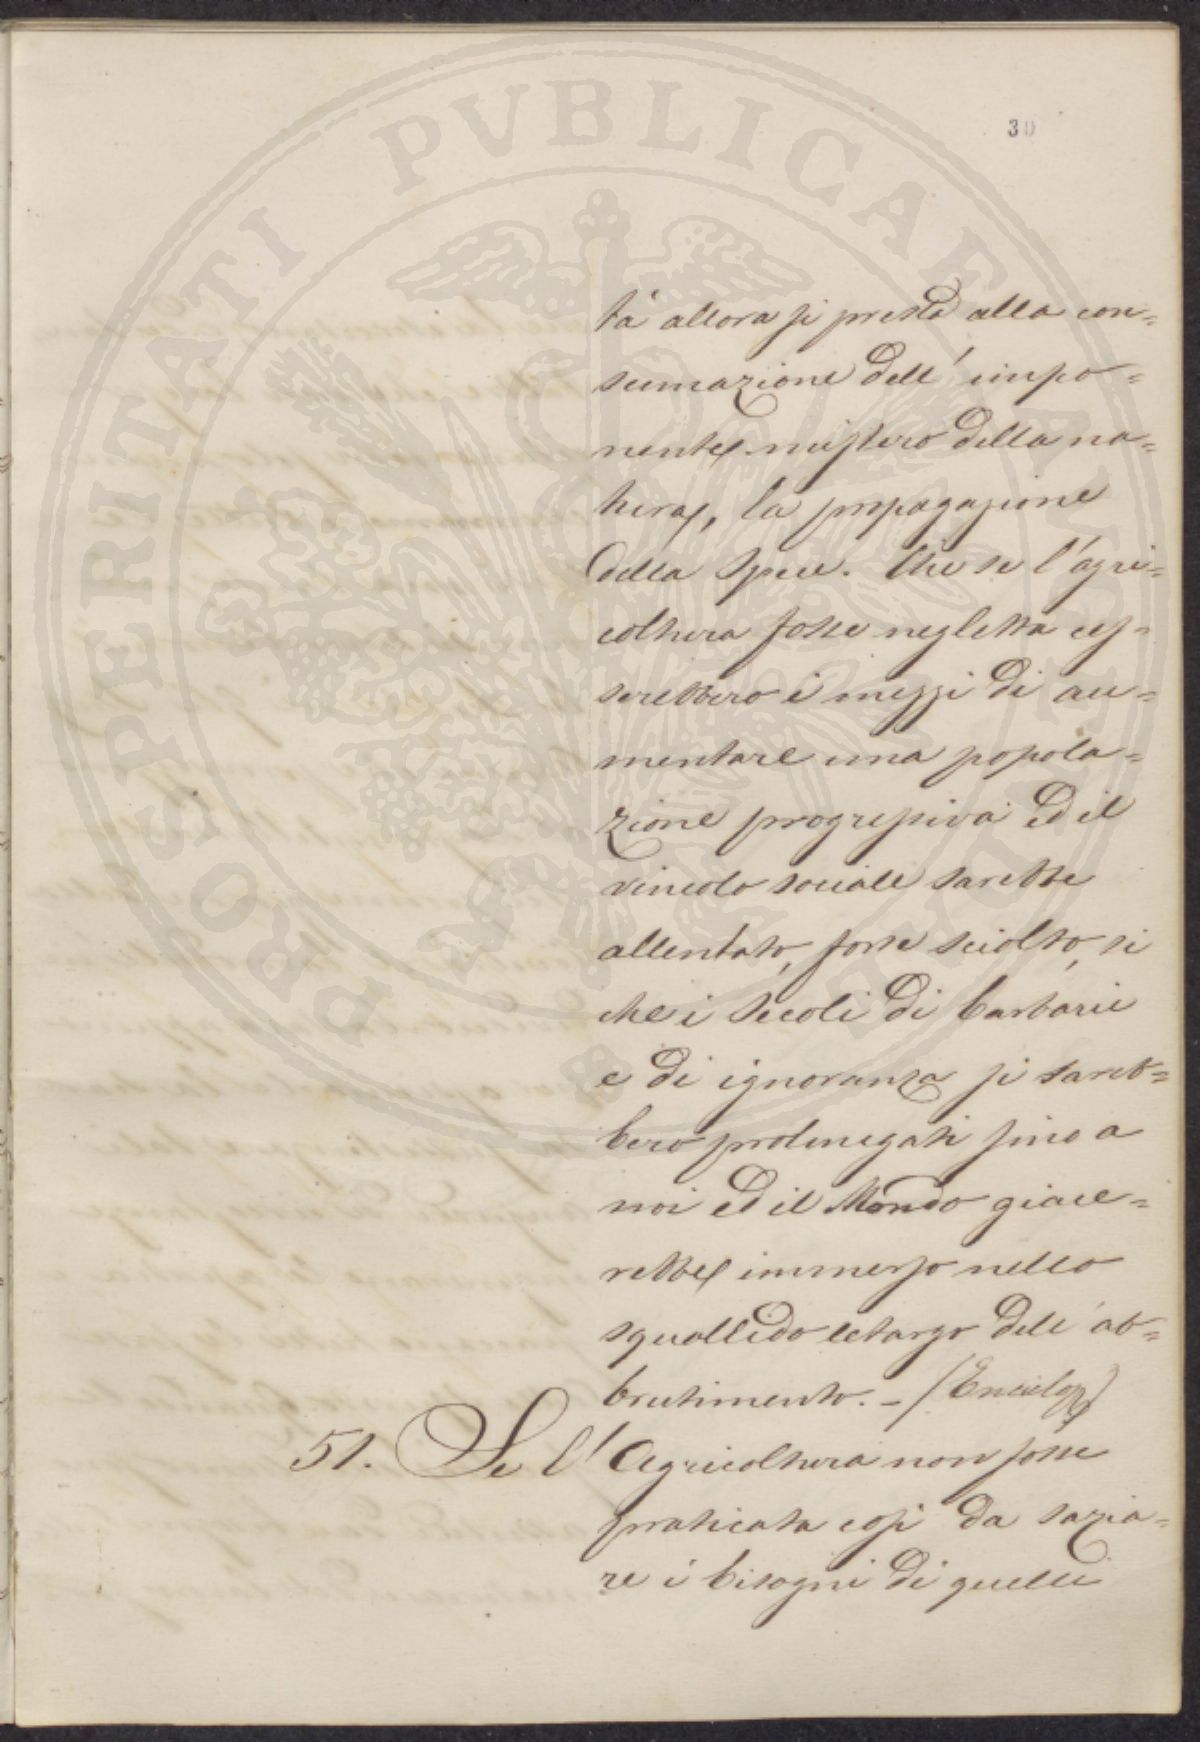 30
PROSPERITATI PVBLICAE AVGENDAE
tà allora si prestò alla con=
sumazione dell' impo=
nente mistero della na=
tura, la propagazione
della specie. Che se l'agri=
coltura fosse negletta ces=
serebbero i mezzi di au=
mentare una popola=
zione progressiva ed il
vincolo sociale sarebbe
allentato, forse sciolto, si
che i secoli di barbarie
e di ignoranza si sareb=
bero prolungati fino a
noi ed il Mondo giace=
rebbe immerso nello
squallido letargo dell' ab=
brutimento. - (Enciclop)
51. Se l' Agricoltura non fosse
praticata così da sazia=
re i bisogni di quelli